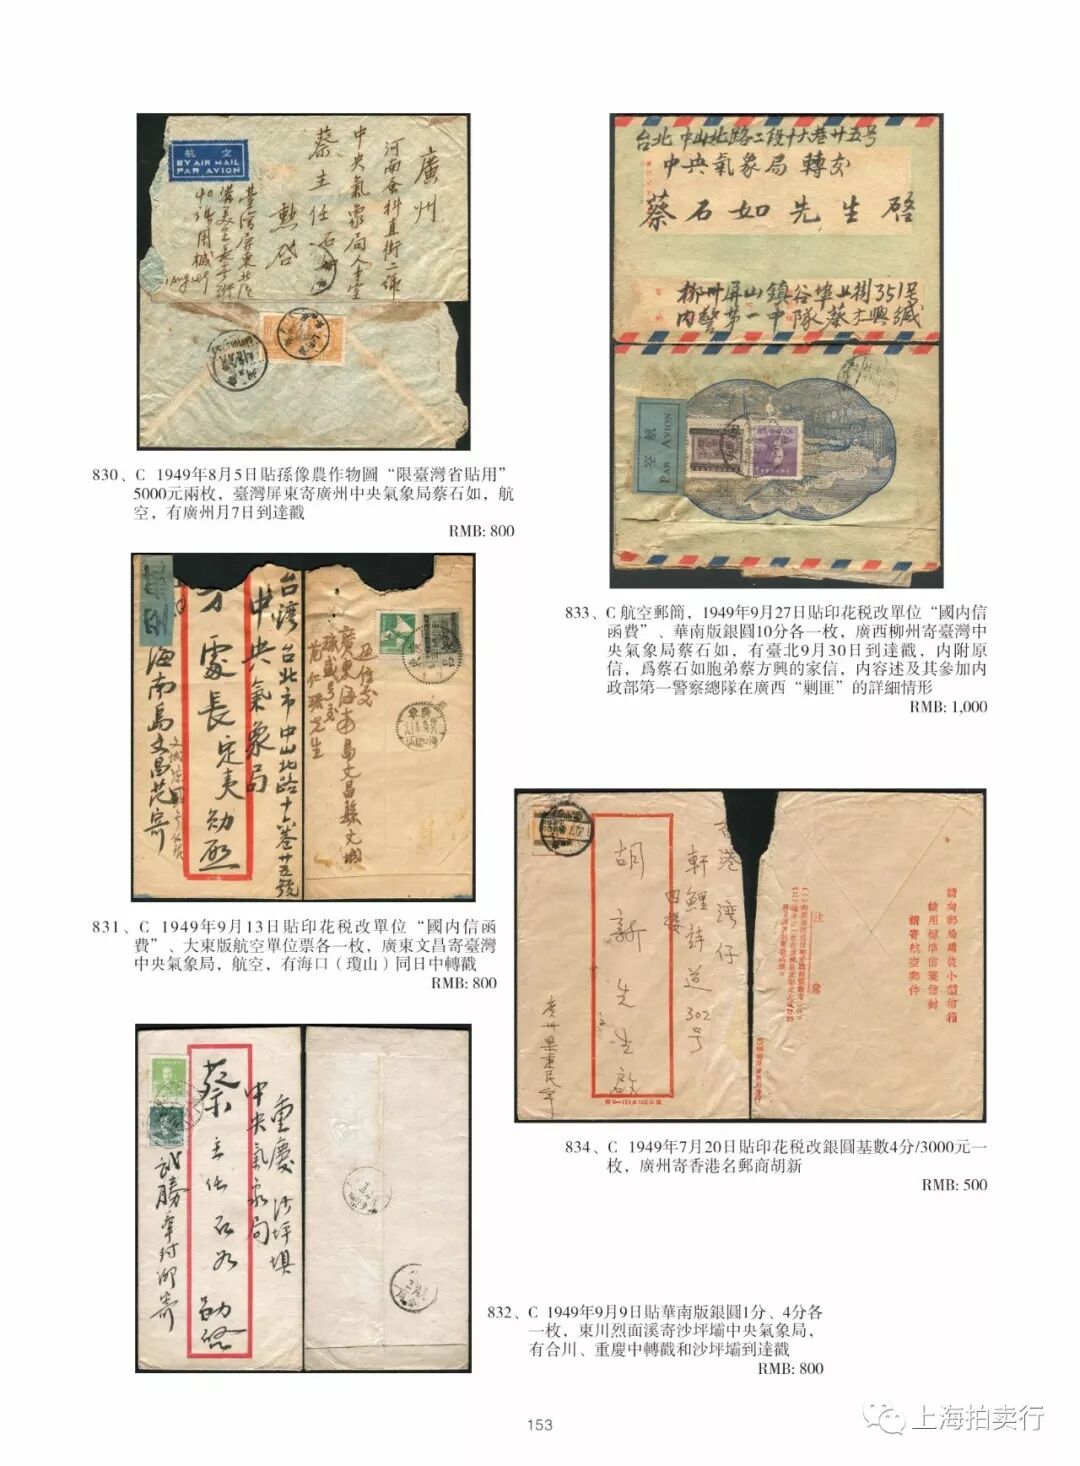 廣州
河南會科直街二號
中央氣象局人事室
蔡主任石如
勳啓
航空
BY AIR MAIL
PAR AVION
830、C 1949年8月5日貼孫像農作物圖“限臺灣省貼用”
5000元兩枚，臺灣屏東寄廣州中央氣象局蔡石如，航
空，有廣州月7日到達戳
RMB: 800
台北中山北路二段十六巷廿五号
中央氣象局 轉交
蔡石如先生 啓
柳州屏山鎮谷埠上街351号
内警第一中隊蔡方興緘
航空
PAR AVION
833、C 航空郵簡，1949年9月27日貼印花税改單位“國内信
函費”、華南版銀圓10分各一枚，廣西柳州寄臺灣中
央氣象局蔡石如，有臺北9月30日到達戳，内附原
信，爲蔡石如胞弟蔡方興的家信，内容述及其參加内
政部第一警察總隊在廣西“剿匪”的詳細情形
RMB: 1,000
台灣台北市中山北路十六巷廿五號
中央氣象局
處長定夷勛啟
海南島文昌范寄
廣東海南島文昌縣文城
831、C 1949年9月13日貼印花税改單位“國内信函
費”、大東版航空單位票各一枚，廣東文昌寄臺灣
中央氣象局，航空，有海口（瓊山）同日中轉戳
RMB: 800
香港灣仔
軒鯉詩道302号
四楼
胡新先生啟
請向郵局購裝小型信箱
請用標準信箋信封
請寄航空郵件
834、C 1949年7月20日貼印花税改銀圓基數4分/3000元一
枚，廣州寄香港名郵商胡新
RMB: 500
重慶沙坪埧
中央氣象局
蔡主任石如 勛啓
832、C 1949年9月9日貼華南版銀圓1分、4分各
一枚，東川烈面溪寄沙坪壩中央氣象局，
有合川、重慶中轉戳和沙坪壩到達戳
RMB: 800
153
上海拍卖行